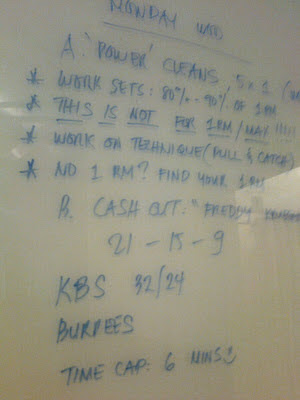 MONDAY WOD
A. 'POWER' CLEANS 5 x 1
* WORK SETS: 80% - 90% OF 1RM
* THIS IS NOT FOR 1RM/MAX !!!!!
* WORK ON TECHNIQUE (PULL & CATCH)
* NO 1 RM? FIND YOUR 1RM
B. CASH OUT: "FREDDY
21 - 15 - 9
KBS 32/24
BURPEES
TIME CAP: 6 MINS